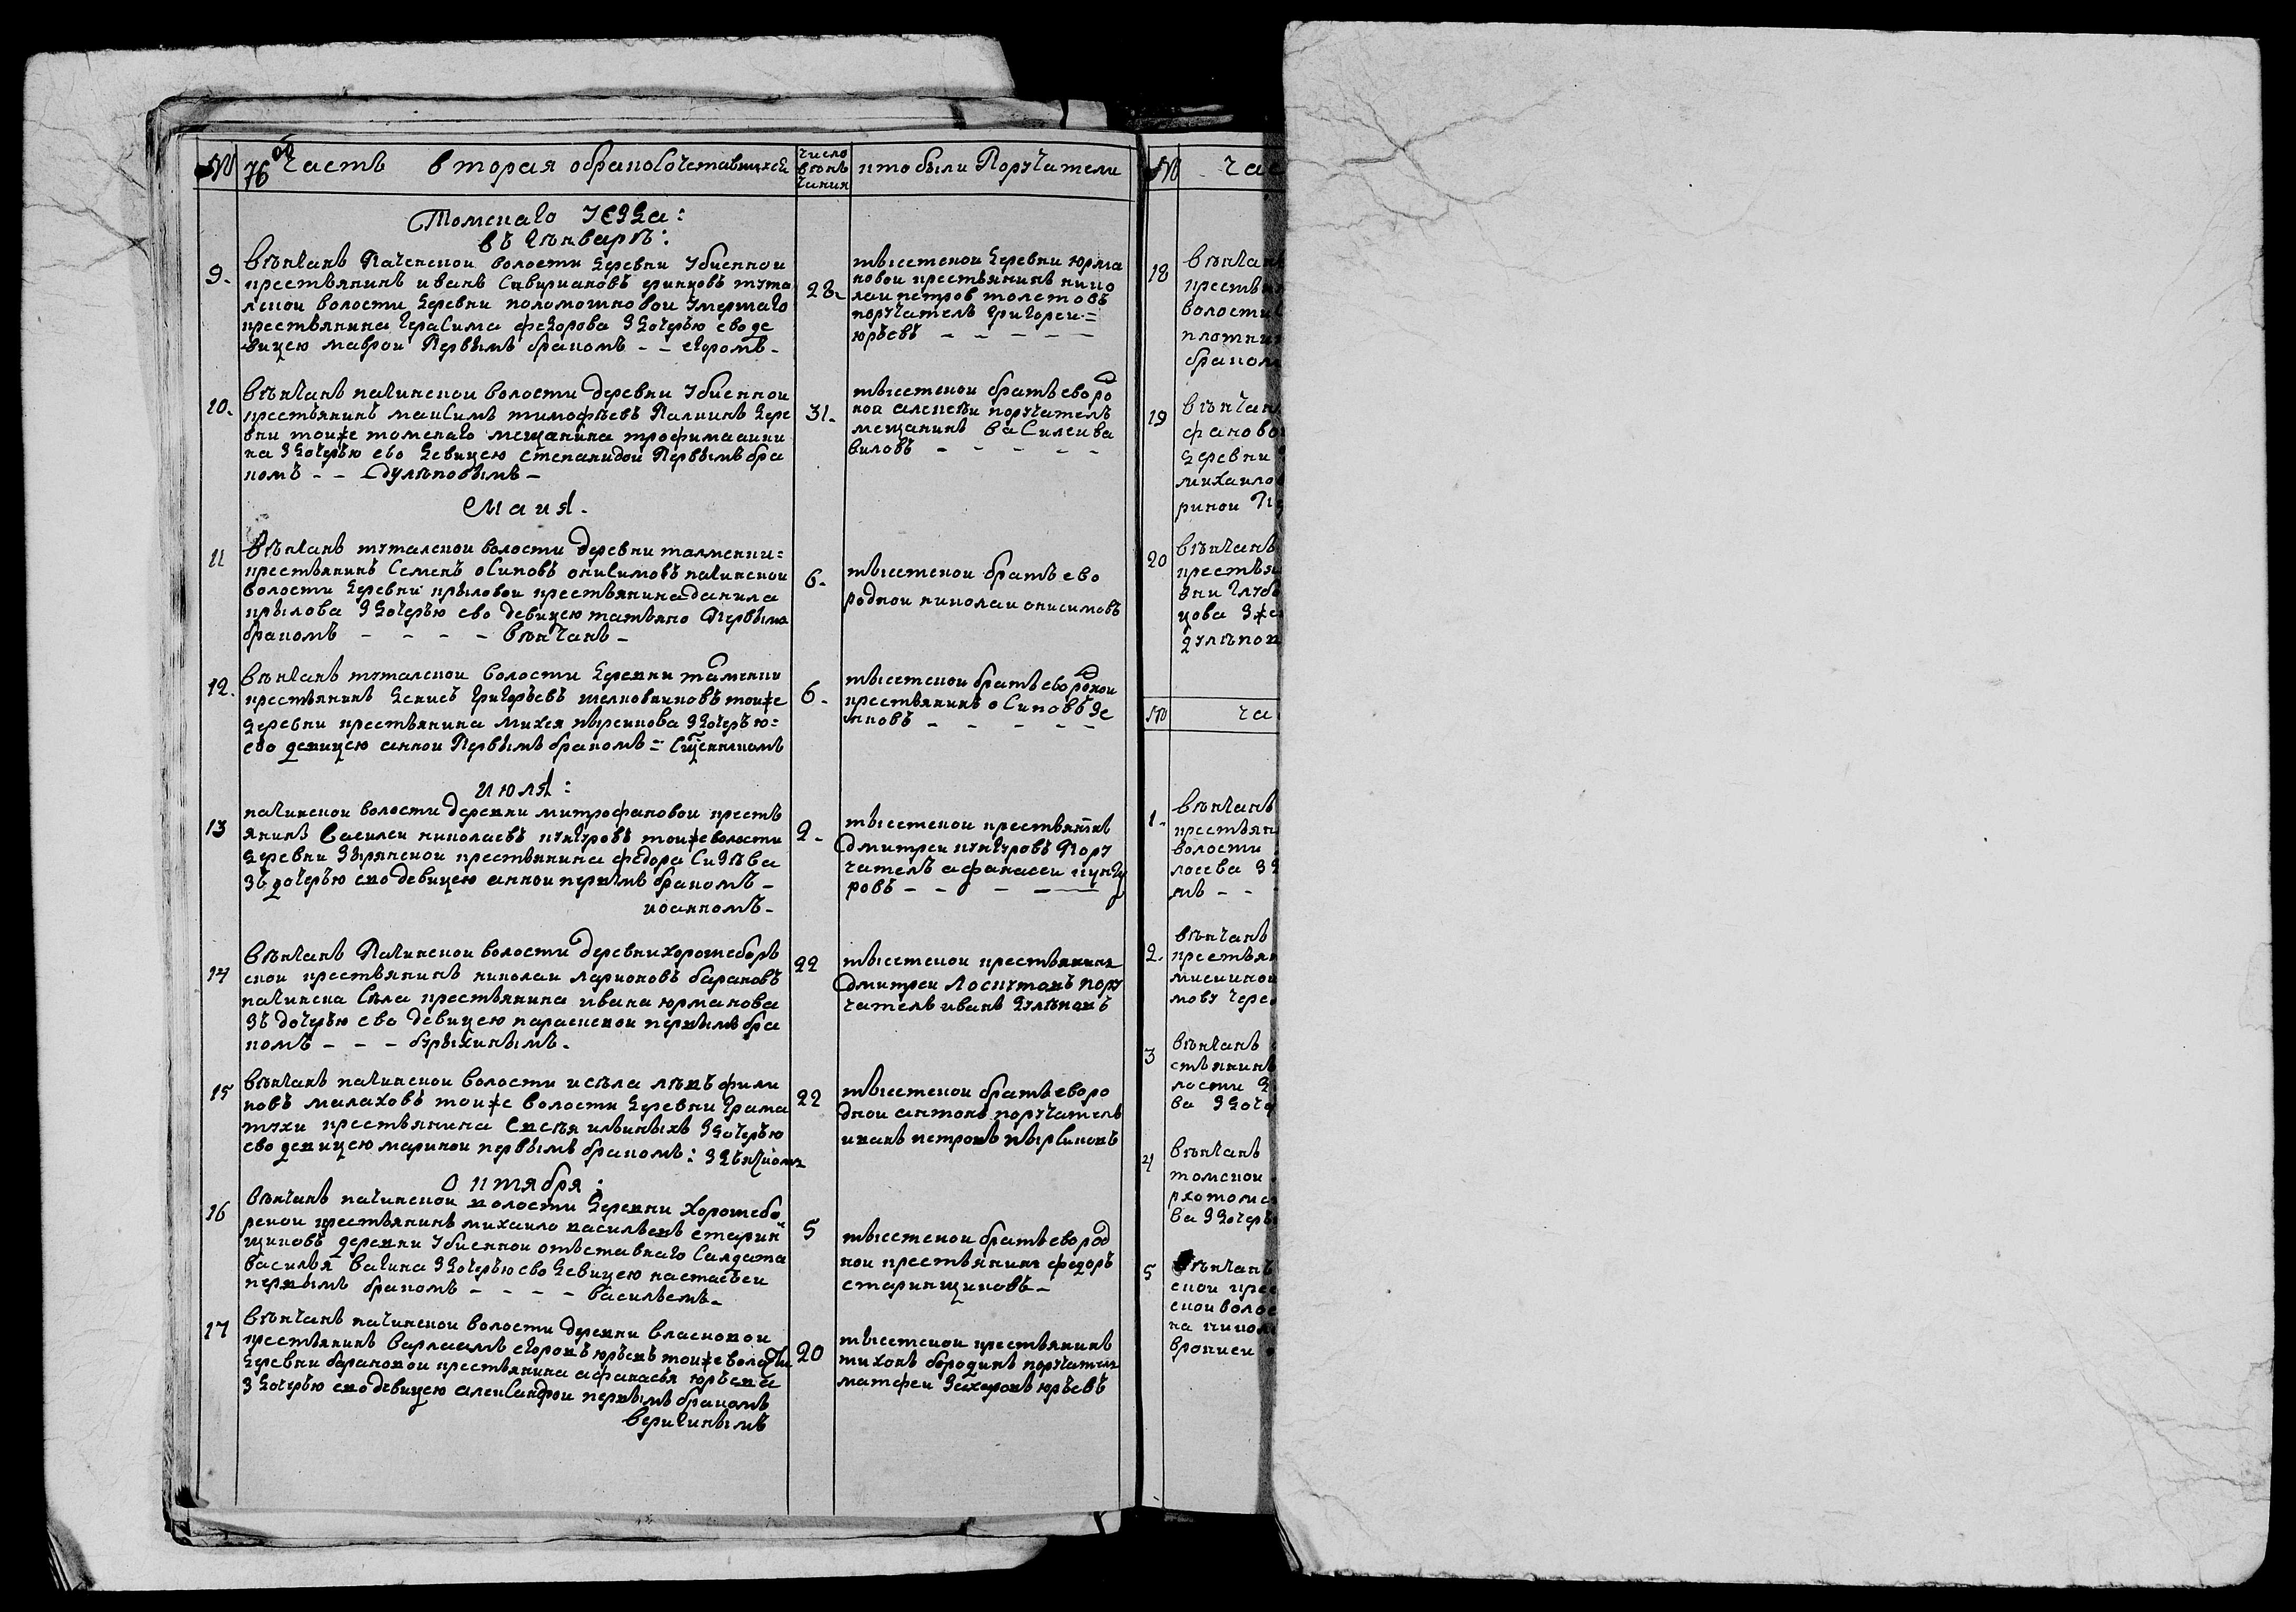 № 76 об Часть вторая обракосочетавшихся
число венъ чания
кто были Поручатели
Томскаго Уезда:
въ Генваре:
9. венчанъ Пачинской волости деревни Убиенной
крестьянинъ иванъ Сивирияновъ
волости деревни поломошновой Умершаго
крестьянина Герасима федорова Здочерью ево де
вицею маврой Первымъ бракомъ - - егоромъ -
28.
тысетской деревни юрма
новой крестьянинъ нико
лаи петров толстовъ
поручатель Григореи =
юръевъ - - - - -
10. венчанъ пачинской волости деревни Убиенной
крестьянинъ маисимъ тимофеевъ Палкинъ дере
вни тоиже томскаго мещанина трофима аники
на Здочерью ево девицею степанидой Первымъ бра
комъ - - дулеповымъ -
31.
тысетской братъ ево ро
нои алексеи поручатель
мещанинъ василеи ва
виловъ - - - - -
Маия.
11 венчанъ тутальской волости деревни талменки =
крестьянинъ Семенъ осиповъ онисимовъ пачинской
волости деревни крыловой крестьянина данила
крылова Здочерью ево девицею татьяно Первымъ
бракомъ - - - - венчанъ -
6.
тысетской братъ ево
родной николаи онисимовъ
12. венчанъ тутальской волости деревни талменки
крестьянинъ денисъ Григорьевъ шелковниковъ тоиже
деревни крестьянина михея пырсикова Здочерью =
ево девицею анной Первымъ бракомъ = Сщенникомъ
6.
тысетской братъ ево родной
крестьянинъ осиповъ Зе
нковъ - - - - -
июля:
13 пачинской волости деревни митрофановой кресть
янинъ василеи николаевъ кунгуровъ тоиже волости
деревни Зырянской крестьянина федора Сизева
Зъ дочерью ево девицею анной первымъ бракомъ -
иоанномъ -
2.
тысетской крестьянинъ
дмитреи кунгуровъ Пору
чатель афанасеи кунгу
ровъ - - - - -
14 венчанъ Пачинской волости деревни хорошеборъ
ской крестьянинъ николаи ларионовъ барановъ
пачинска Села крестьянина ивана юрманова
Зъ дочерью ево девицею параскекой первымъ бра
комъ - - - бурыхинымъ -
22
тысетской крестьянинъ
дмитреи Лоскутовъ пору
чатель иванъ дулеповъ
15 венчанъ пачинской волости исела левъ фили
повъ малаховъ тоиже волости деревни Грама
тухи крестьянина евсея ильиныхъ Здочерью
ево девицею мариной первымъ бракомъ: Здьячкомъ
22
тысетской братъ ево ро
дной антонъ поручатель
иванъ петровъ пырсиковъ
октября:
16 венчанъ пачинской волости деревни Хорошебо
рской крестьянинъ михаило васильевъ старин
щиковъ деревни Убиенной отъставнаго Салдата
василья вагина Здочерью ево девицею настасьеи
первымъ бракомъ - - - - васильемъ -
5
тысетской братъ ево род
ной крестьянинъ федоръ
старинщиковъ -
17 венчанъ пачинской волости деревни власковой
крестьянинъ варлаамъ егоровъ юръевъ тоиже волости
деревни барановой крестьянина афанасья юръева
Здочерью ево девицею александрой первымъ бракомъ
веригинымъ
20
тысетской крестьянинъ
тихонъ бородинъ поручатель
матфеи Захаровъ юръевъ
№ час
18 венчан
крестья
волости
плотни
браком
19 венчан
фаново
деревни
михаило
риной П
20 венчанъ
крестья
вни Глуб
цова Зже
дулепов
№ ча
1. венчанъ
крестьян
волости
лосева Зд
мъ - -
2. венчанъ
крестьян
мискиной
мову чере
3 венчанъ
стьянинъ
лости
ва Здоче
4 венчанъ
томской
ва Здочерь
5 венчанъ
ской кре
ской волос
на никол